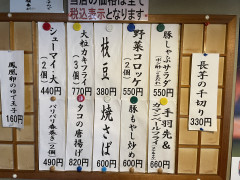 当店の価格は全て
税込表示となります。
長芋の千切り
330円
豚しゃぶサラダ
550円
野菜コロッケ
550円
枝豆
380円
大粒カキフライ
(3個)
770円
シューマイ・大
(2個)
440円
手羽先&
660円
豚もやし炒め
600円
焼さば
600円
タコの唐揚げ
820円
パリパリ
490円
鳳凰卵のゆで王子
160円